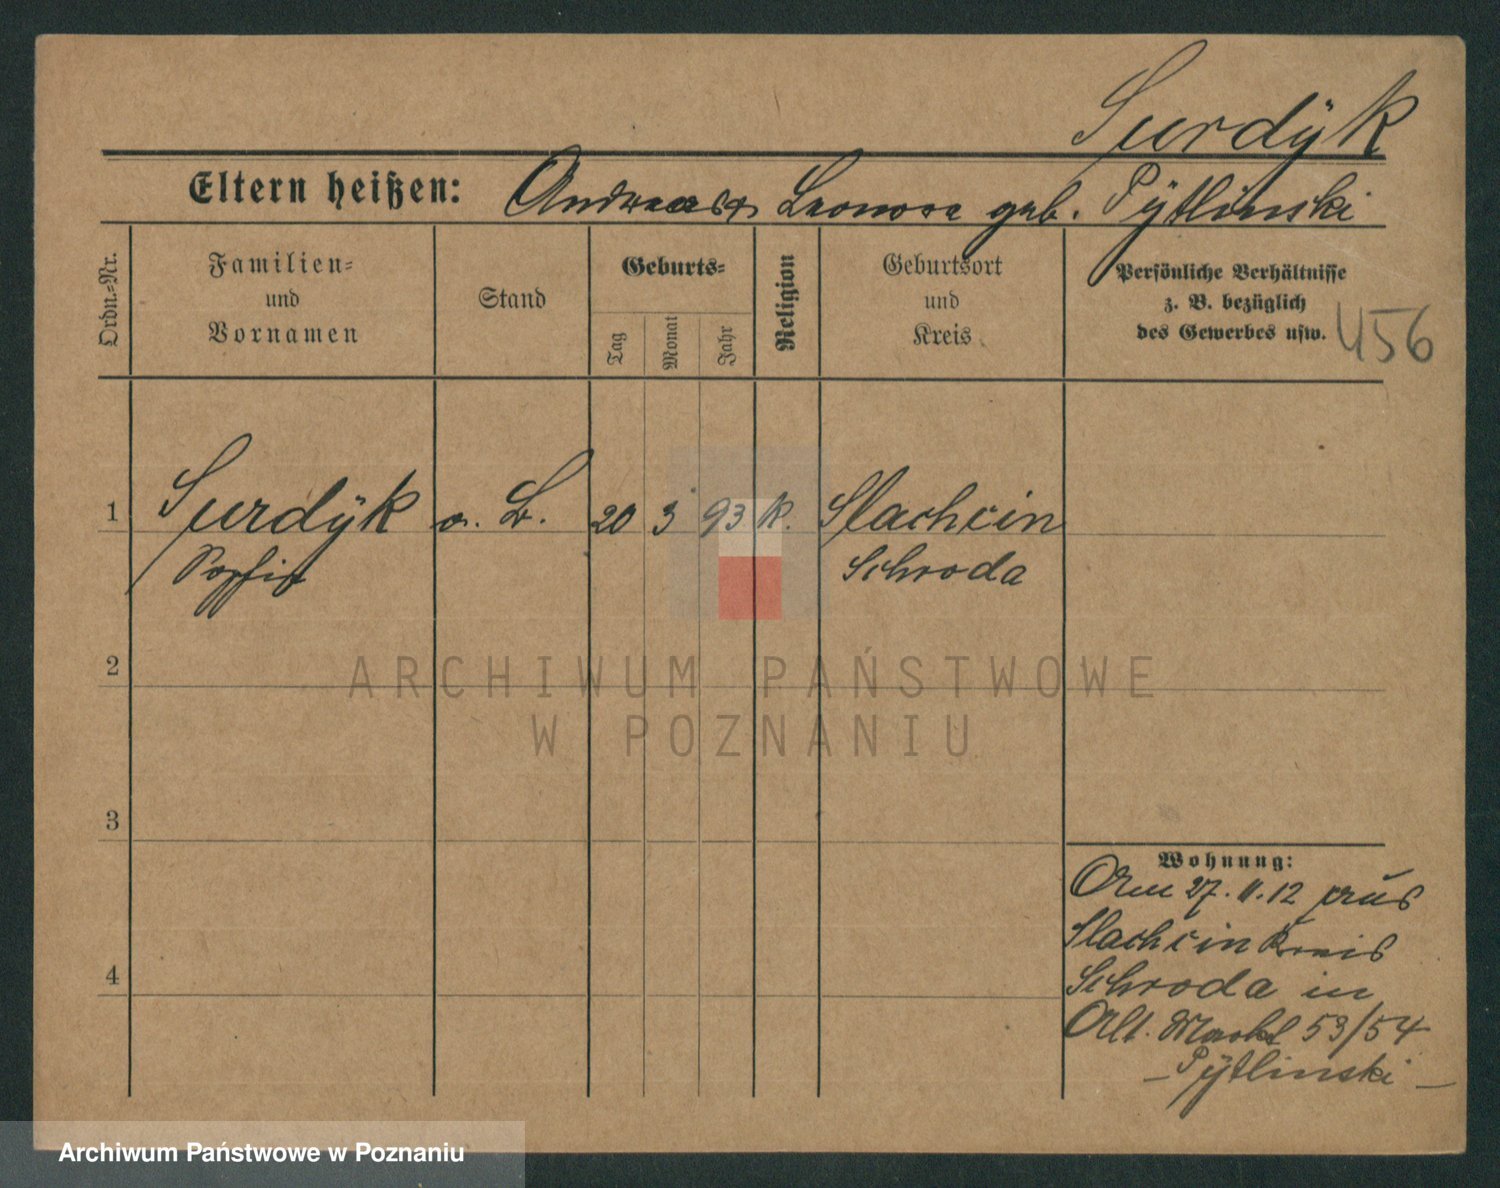 Surdÿk
Eltern heißen: Andreas Leonore geb. Pÿtlinski
Ordn.-Nr.
Familien-
und
Vornamen
Stand
Geburts-
Tag
Monat
Jahr
Religion
Geburtsort
und
Kreis
Persönliche Verhältnisse
z. B. bezüglich
des Gewerbes usw.
456
1 Surdÿk o. B. 20 3 93 K. Slachcin
Sophie Schroda
2
3
4
Wohnung:
Am 27. 11. 12 aus
Slachcin Kreis
Schroda in
Alt. Markt 53/54
– Pÿtlinski –
ARCHIWUM PAŃSTWOWE
W POZNANIU
Archiwum Państwowe w Poznaniu